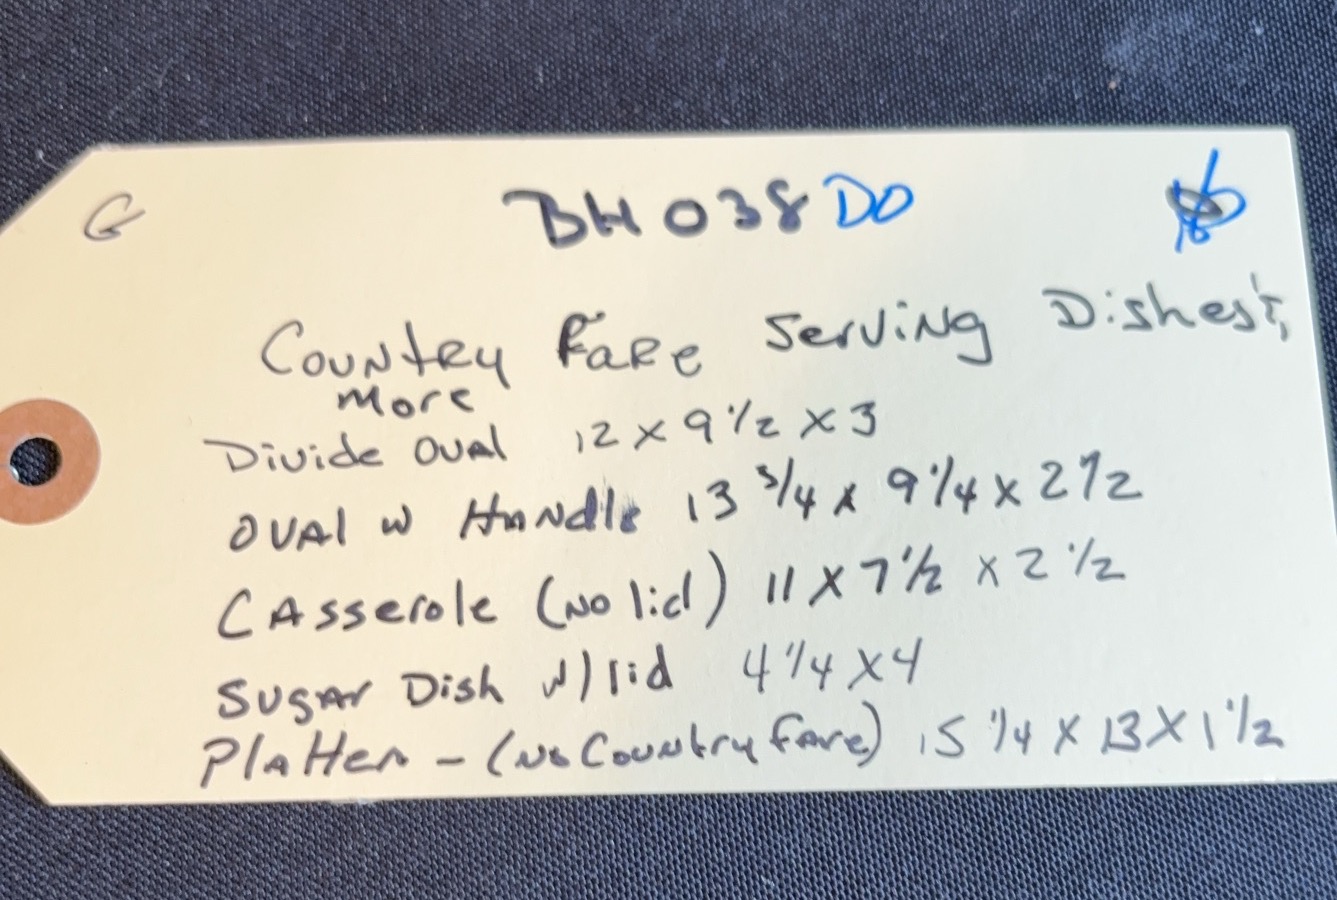 G BH038DO
Country Fare Serving Dishes &
more
Divide Oval 12 x 9 1/2 x 3
Oval w Handle 13 3/4 x 9 1/4 x 2 1/2
Casserole (No lid) 11 x 7 1/2 x 2 1/2
Sugar Dish w/lid 4 1/4 x 4
Platter - (No Country Fare) 15 1/4 x 13 x 1 1/2